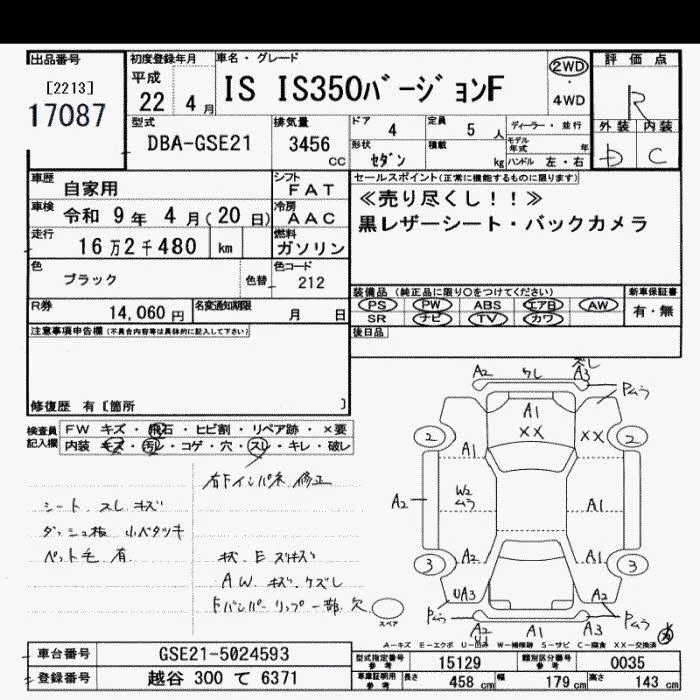 出品番号
[2213]
17087
初度登録年月
平成
22 4 月
車名・グレード
IS IS350バージョンF
2WD
4WD
評価点
R
外装 内装
D C
型式
DBA-GSE21
排気量
3456
CC
ドア
4
定員
5 人
形状
セダン
積載
kg
ディーラー・並行
モデル年式 年
ハンドル 左・右
車歴
自家用
シフト
FAT
車検
令和 9 年 4 月 (20 日)
冷房
AAC
走行
16 万 2 千 480 km
燃料
ガソリン
色
ブラック
色替
色コード
212
セールスポイント(正常に機能するものに限ります)
≪売り尽くし!!≫
黒レザーシート・バックカメラ
装備品(純正品に限り○をつけてください)
PS PW ABS エアB AW
SR ナビ TV カワ
新車保証書
有・無
R券
14,060 円
名変通知期限
月 日
後日品
注意事項申告欄(不具合内容等は具体的に記入して下さい)
修復歴 有 [箇所 ]
検査員
記入欄
FW キズ・飛石・ヒビ割・リペア跡・×要
内装 キズ・汚レ・コゲ・穴・スレ・キレ・破レ
右Fインパネ 修正
シート、スレ キズ
ダッシュ板 小ベタツキ
ペット毛 有
キズ、E スリキズ
AW キズ、ケズレ
Fバンパーリップ 一部 欠
A2 ワレ A3
Pムラ
A1
XX XX
2 2
A1
A2 W2 ムラ A1
A2 A1
3 3
UA3 A2
Pムラ Pムラ
A2 A1 A3
U
スペア
A−キズ E−エクボ U−凹み W−補修跡 S−サビ C−腐食 XX−交換済
車台番号
GSE21-5024593
登録番号
越谷 300 て 6371
型式指定番号
参考
15129
類別区分番号
参考
0035
車庫証明用
参考
長さ 458 cm
幅 179 cm
高さ 143 cm